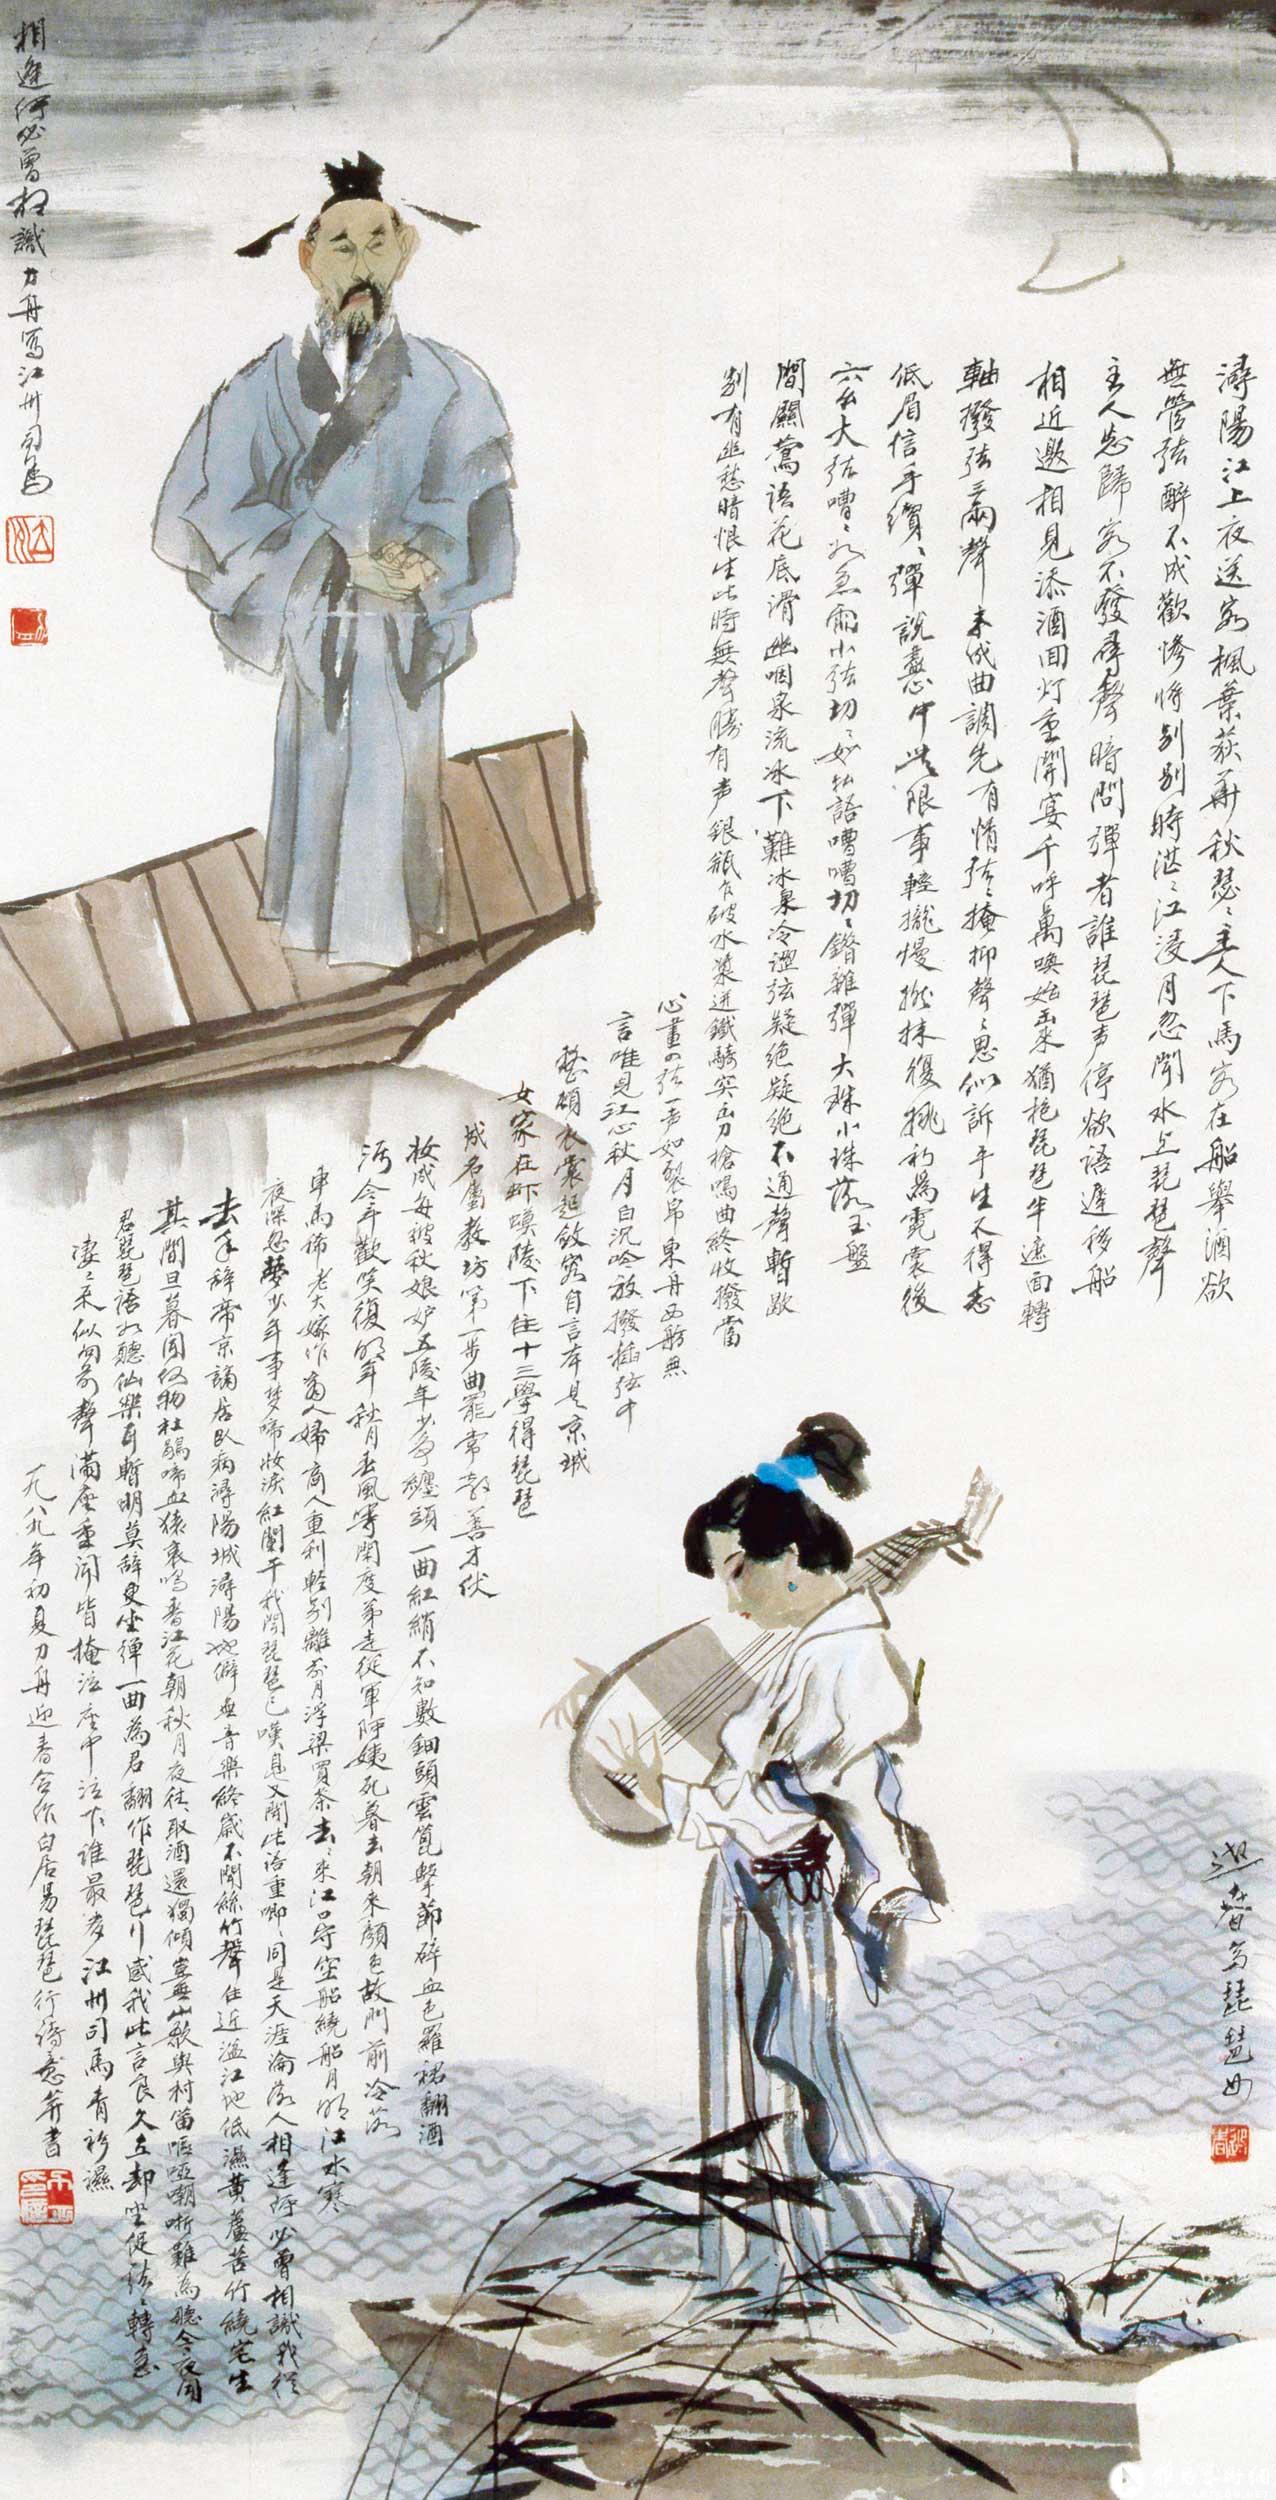 潯陽江上夜送客楓葉荻華秋瑟〻主人下馬客在船舉酒欲
無管弦醉不成歡慘將别别時茫〻江浸月忽聞水上琵琶聲
主人忘歸客不發尋聲暗問彈者誰琵琶声停欲語遲移船
相近邀相見添酒回灯重開宴千呼萬喚始出來猶抱琵琶半遮面轉
軸撥弦三兩聲未成曲調先有情弦〻掩抑聲〻思似訴平生不得志
低眉信手續〻彈說盡心中無限事輕攏慢撚抹復挑初為霓裳後
六幺大弦嘈〻如急雨小弦切〻如私語嘈嘈切〻錯雜彈大珠小珠落玉盤
間關鶯語花底滑幽咽泉流冰下難冰泉冷澀弦疑絶疑絶不通聲暫歇
别有幽愁暗恨生此時無聲勝有声銀瓶乍破水漿迸鐵騎突出刀槍鳴曲終收撥當
心畫四弦一声如裂帛東舟西舫無
言唯見江心秋月白沉吟放撥插弦中
整頓衣裳起斂容自言本是京城
女家在虾蟆陵下住十三學得琵琶
成名屬教坊第一步曲罷常教善才伏
妝成每被秋娘妒五陵年少爭纏頭一曲紅綃不知數鈿頭雲篦擊節碎血色羅裙翻酒
污今年歡笑復明年秋月春風等閑度弟走從軍阿姨死暮去朝來顔色故門前冷落
車馬稀老大嫁作商人婦商人重利輕别離前月浮梁買茶去〻來江口守空船繞船月明江水寒
夜深忽夢少年事梦啼妝淚紅闌干我聞琵琶已嘆息又聞此語重唧〻同是天涯淪落人相逢何必曾相識我從
去年辭帝京謫居卧病潯陽城潯陽地僻無音樂終歲不聞絲竹聲住近湓江地低濕黄蘆苦竹繞宅生
其間旦暮聞何物杜鵑啼血猿哀鳴春江花朝秋月夜往〻取酒還獨傾豈無山歌與村笛嘔啞嘲哳難為聽今夜聞
君琵琶語如聽仙樂耳暫明莫辭更坐彈一曲為君翻作琵琶行感我此言良久立却坐促弦〻轉急
凄〻不似向前聲滿座重聞皆掩泣座中泣下誰最多江州司馬青衫濕
一九八九年初夏力舟迎春合作白居易琵琶行詩意并書
相逢何必曾相識力舟寫江州司馬
迎春寫琵琶女
迎春
雅昌艺术网